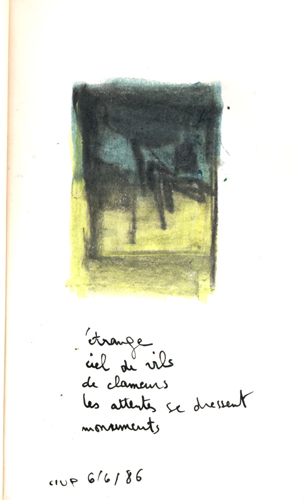 étrange
ciel de vils
de clameurs
les attentes se dressent
monuments
CIUP 6/6/86